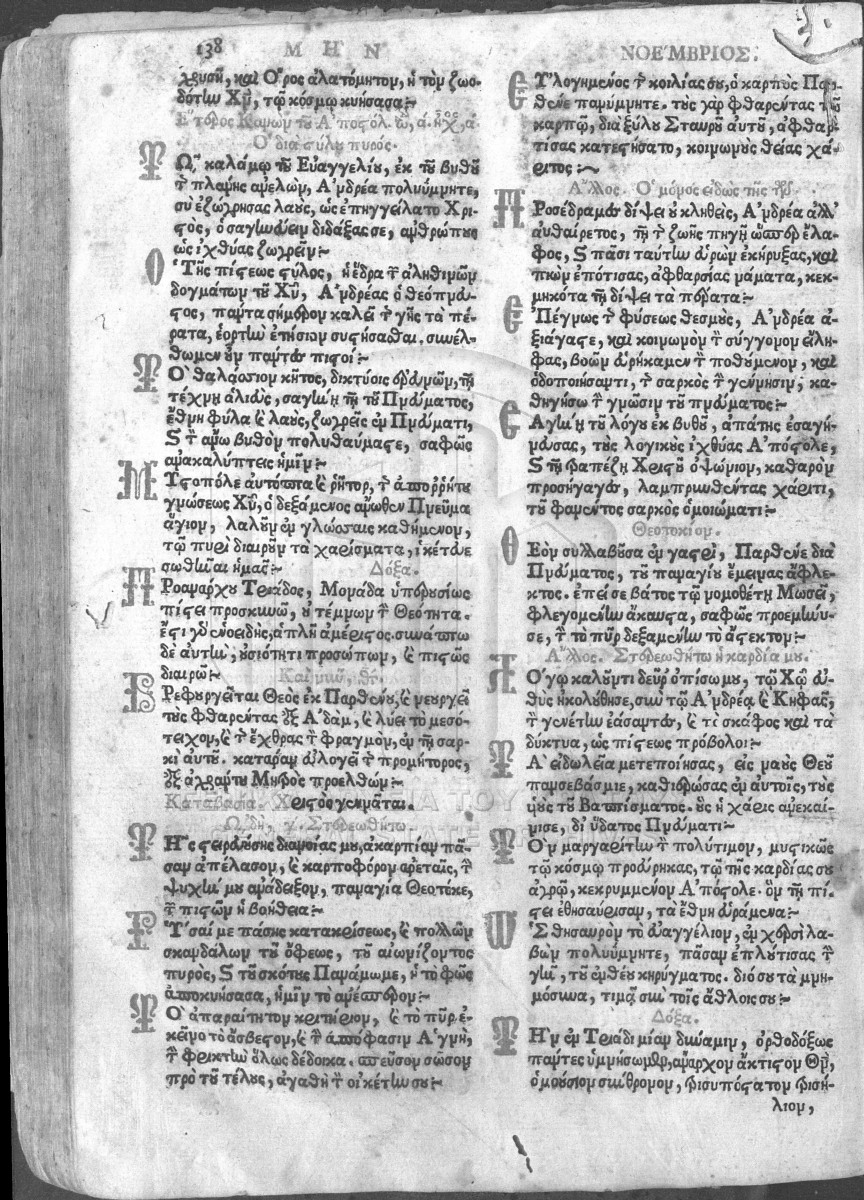 138 ΜΗΝ
χρυσῆ, καὶ Ὄρος ἀλατόμητον, ἡ τὸν ζωο-
δότην Χν̅, τῷ κόσμῳ κυήσασα:~
Ἕτερος Κανὼν τοῦ Ἀποστόλ. ᾠ, ά. ἦχος, ά
Ὁ διὰ στύλου πυρὸς.
Τῷ καλάμῳ τοῦ Εὐαγγελίου, ἐκ τοῦ βυθοῦ
τῆς πλάνης ἀνελὼν, Ἀνδρέα πολυΰμνητε,
σὺ ἐζώγρησας λαοὺς, ὡς ἐπηγγείλατο Χρι-
στὸς, ὁ σαγηνεύειν διδάξας σε, ἀνθρώπους
ὡς ἰχθύας ζωγρεῖν:~
Ὁ Τῆς πίστεως στῦλος, ἡ ἕδρα τῶν ἀληθινῶν
δογμάτων τοῦ Χυ̅, Ἀνδρέας ὁ θεόπνευ-
στος, πάντα σήμερον καλεῖ τῆς γῆς τὰ πέ-
ρατα, ἑορτὴν ἐτήσιον συστήσασθαι. συνέλ-
θωμεν οὖν πάντες πιστοί:~
Τὸ θαλάσσιον κῆτος, δικτύοις ἐρευνῶν, τῇ
τέχνῃ ἁλιεὺς, σαγήνῃ τῇ τοῦ Πνεύματος,
ἔθνη φύλα καὶ λαοὺς, ζωγρεῖς ἐν Πνεύματι,
καὶ τὸν ἄνω βυθὸν πολυθαύμαστε, σαφῶς
ἀνακαλύπτεις ἡμῖν:~
Μυστοπόλε αὐτόπτα καὶ ῥῆτορ, τῆς ἀπορρήτου
γνώσεως Χυ̅, ὁ δεξάμενος ἄνωθεν Πνεῦμα
ἅγιον, λαλοῦν ἐν γλώσσαις καθήμενον,
τῷ πυρὶ διαιροῦν τὰ χαρίσματα, ἱκέτευε
σωθῆναι ἡμᾶς:~ Δόξα.
Προανάρχου Τριάδος, Μονάδα ὑπερουσίως
πίστει προσκυνῶ, οὐ τέμνων τὴν Θεότητα.
ἔστι γὰρ ἑνοειδὴς, ἁπλῆ ἀμέριστος. συνάπτω
δὲ αὐτὴν, οὐσιότητι προσώπων, καὶ πιστῶς
διαιρῶ:~ Καὶ νῦν, θτ.
Βρεφουργεῖται Θεὸς ἐκ Παρθένου, καὶ νεουργεῖ
τοὺς φθαρέντας ἐξ Ἀδὰμ, καὶ λύει τὸ μεσό-
τειχον, καὶ τῆς ἔχθρας τὸν φραγμὸν, ἐν τῇ σαρ-
κὶ αὐτοῦ. κατάραν εὐλογεῖ τῆς προμήτορος,
ἐξ ἀχράντου Μητρὸς προελθών:~
Καταβασία. Χριστὸς γεννᾶται.
ᾨδὴ, γ. Στερεωθήτω.
Τῆς στειρευούσης διανοίας μου, ἀκαρπίαν πᾶ-
σαν ἀπέλασον, καὶ καρποφόρον ἀρεταῖς, τὴν
ψυχήν μου ἀνάδειξον, παναγία Θεοτόκε,
τῶν πιστῶν ἡ βοήθεια:~
Ῥῦσαί με πάσης κατακρίσεως, καὶ πολλῶν
σκανδάλων τοῦ ὄφεως, τοῦ αἰωνίζοντος
πυρὸς, καὶ τοῦ σκότους Πανάμωμε, ἡ τὸ φῶς
ἀποκυήσασα, ἡμῖν τὸ ἀνέσπερον:~
Τὸ ἀπαραίτητον κριτήριον, καὶ τὸ πῦρ ἐ-
κεῖνο τὸ ἄσβεστον, καὶ τὴν ἀπόφασιν Ἁγνὴ,
τὴν φρικτὴν ὅλως δέδοικα. σπεῦσον σῶσον
πρὸ τοῦ τέλους, ἀγαθὴ τὸν οἰκέτην σου:~
ΝΟΕΜΒΡΙΟΣ.
Εὐλογημένος τῆς κοιλίας σου, ὁ καρπὸς Παρ-
θένε πανύμνητε. τοὺς γὰρ φθαρέντας τῷ
καρπῷ, διὰ ξύλου Σταυροῦ αὐτοῦ, ἀφθαρ-
τίσας κατεστήσατο, κοινωνοὺς θείας χά-
ριτος:~
Ἄλλος. Ὁ μόνος εἰδὼς τῆς τῶν
Προσέδραμες δίψει οὐ κληθεὶς, Ἀνδρέα ἀλλ'
αὐθαίρετος, τῇ τῆς ζωῆς πηγῇ ὥσπερ ἔλα-
φος, καὶ πᾶσι ταύτην εὑρὼν ἐκήρυξας, καὶ
πιὼν ἐπότισας, ἀφθαρσίας νάματα, κεκ-
μηκότα τῇ δίψει τὰ πέρατα:~
Ἐπέγνως τῆς φύσεως θεσμοὺς, Ἀνδρέα ἀ-
ξιάγαστε, καὶ κοινωνὸν τὸν σύγγονον εἴλη-
φας, βοῶν εὑρήκαμεν τὸν ποθούμενον, καὶ
ὁδοποιήσαντι, τῆς σαρκὸς τὴν γέννησιν, κα-
θηγήσω τὴν γνῶσιν τοῦ πνεύματος:~
Σαγήνῃ τοῦ λόγου ἐκ βυθοῦ, ἀπάτης ἐσαγή-
νευσας, τοὺς λογικοὺς ἰχθύας Ἀπόστολε,
καὶ τῇ τραπέζῃ Χριστοῦ ὀψώνιον, καθαρὸν
προσήγαγες, λαμπρυνθέντας χάριτι,
τοῦ φανέντος σαρκὸς ὁμοιώματι:~
Θεοτοκίον.
Θεὸν συλλαβοῦσα ἐν γαστρὶ, Παρθένε διὰ
Πνεύματος, τοῦ παναγίου ἔμεινας ἄφλε-
κτος. ἐπεί σε βάτος τῷ νομοθέτῃ Μωσεῖ,
φλεγομένην ἄκαυστα, σαφῶς προεμήνυ-
σε, τὴν τὸ πῦρ δεξαμένην τὸ ἄστεκτον:~
Ἄλλος. Στερεωθήτω ἡ καρδία μου.
Λόγῳ καλοῦντι δεῦρ' ὀπίσω μου, τῷ Χῷ εὐ-
θὺς ἠκολούθησε, σὺν τῷ Ἀνδρέᾳ καὶ Κηφᾶς,
τὸν γενέτην ἐάσαντες, καὶ τὸ σκάφος καὶ τὰ
δίκτυα, ὡς πίστεως πρόβολοι:~
Τὰ εἰδωλεῖα μετεποίησας, εἰς ναοὺς Θεοῦ
πανσεβάσμιε, καθιερώσας ἐν αὐτοῖς, τοὺς
υἱοὺς τοῦ Βαπτίσματος. οὓς ἡ χάρις ἀνεκαί-
νισε, δι' ὕδατος Πνεύματι:~
Τὸν μαργαρίτην τὸν πολύτιμον, μυστικῶς
τῷ κόσμῳ προεύρηκας, τῷ τῆς καρδίας σου
ἀγρῷ, κεκρυμμένον Ἀπόστολε. ὃν τῇ πί-
στει ἐθησαύρισαν, τὰ ἔθνη εὑράμενα:~
Ὡς θησαυρὸν τὸ εὐαγγέλιον, ἐν χερσὶ λα-
βὼν πολυΰμνητε, πᾶσαν ἐπλούτισας τὴν
γῆν, τοῦ ἐνθέου κηρύγματος. διό σου τὰ μνη-
μόσυνα, τιμᾷ σὺν τοῖς ἄθλοις σου:~
Δόξα.
Τὴν ἐν Τριάδι μίαν δύναμιν, ὀρθοδόξως
πάντες ὑμνήσωμεν, ἄναρχον ἄκτιστον Θν̅,
ὁμοούσιον σύνθρονον, τρισυπόστατον τρισή-
λιον,